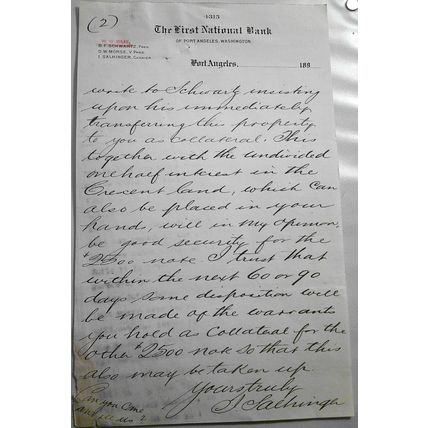 (2)
4315
The First National Bank
OF PORT ANGELES, WASHINGTON.
B. F. SCHWARTZ, PRES.
D. W. MORSE, V. PRES.
I. SALHINGER, CASHIER.
Port Angeles, 189
write to Schwartz insisting
upon his immediately
transferring this property
to you as collateral. This
together with the undivided
one half interest in the
Crescent land, which can
also be placed in your
hand, will in my opinion,
be good security for the
$2500 note. I trust that
within the next 60 or 90
days some disposition will
be made of the warrants
you hold as collateral for the
other $2500 note so that this
also may be taken up.
Yours truly
I Salhinger
Can you come
and see us?